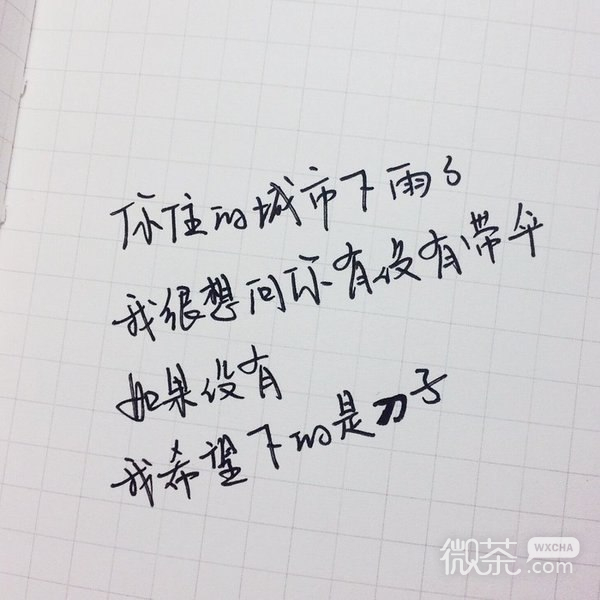 你住的城市下雨了
我很想问你有没有带伞
如果没有
我希望下的是刀子
微茶
WXCHA
.com